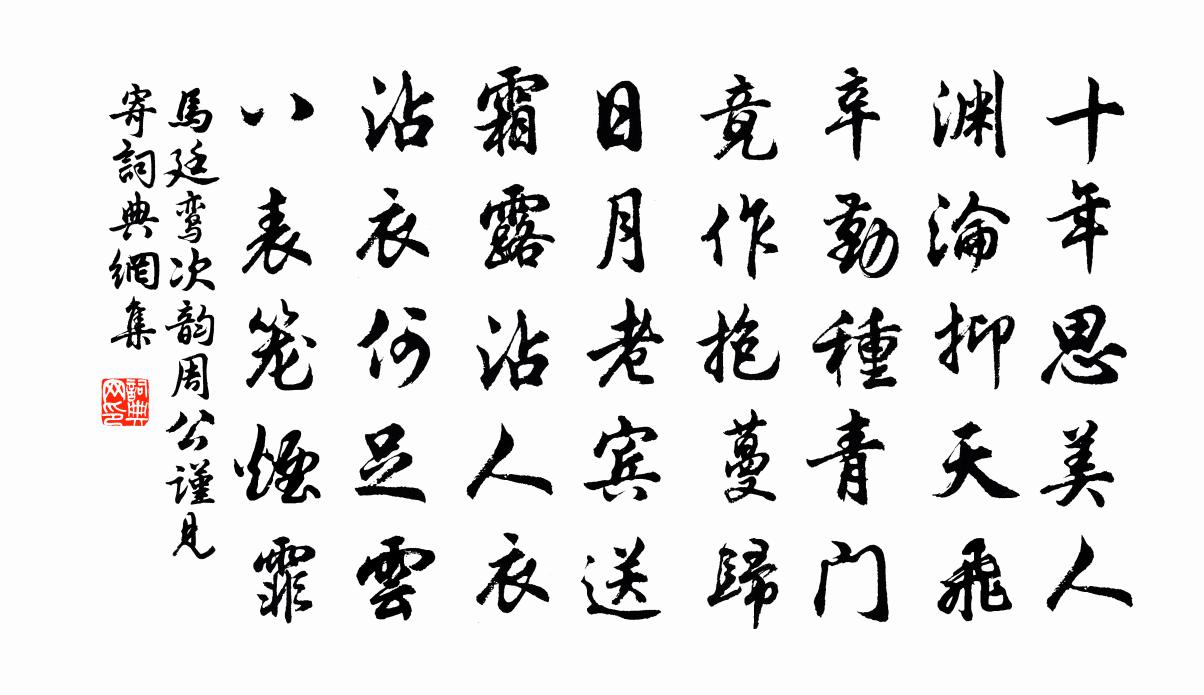 十年思美人
渊淪抑天飛
辛勤種青门
竟作抱蔓歸
日月老宾送
霜露沾人衣
沾衣何足雲
八表笼煙霏
馬廷鸾次韵周公謹見
寄詞典網集
詞典
网印